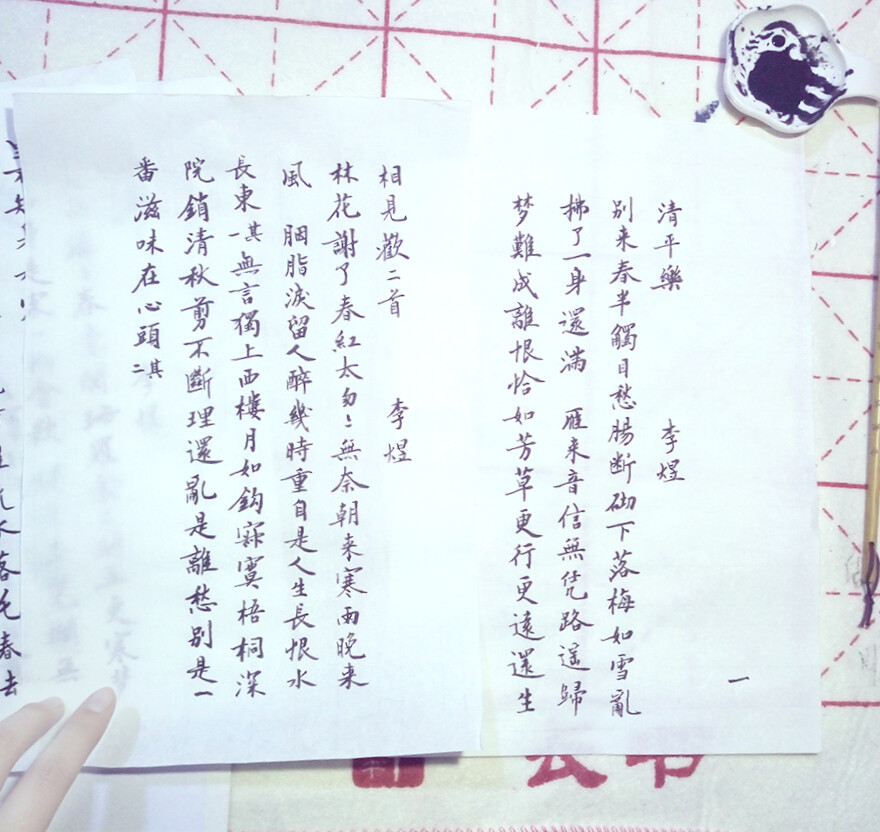 一
清平樂 李煜
別来春半觸目愁腸断砌下落梅如雪亂
拂了一身還滿 雁来音信無凭路遥歸
梦難成離恨恰如芳草更行更遠還生
相見歡二首 李煜
林花謝了春紅太匆〻無奈朝来寒雨晚来
風 胭脂淚留人醉幾時重自是人生長恨水
長東 其一 無言獨上西樓月如鈎寂寞梧桐深
院鎖清秋剪不斷理還亂是離愁别是一
番滋味在心頭 其二
落花春去